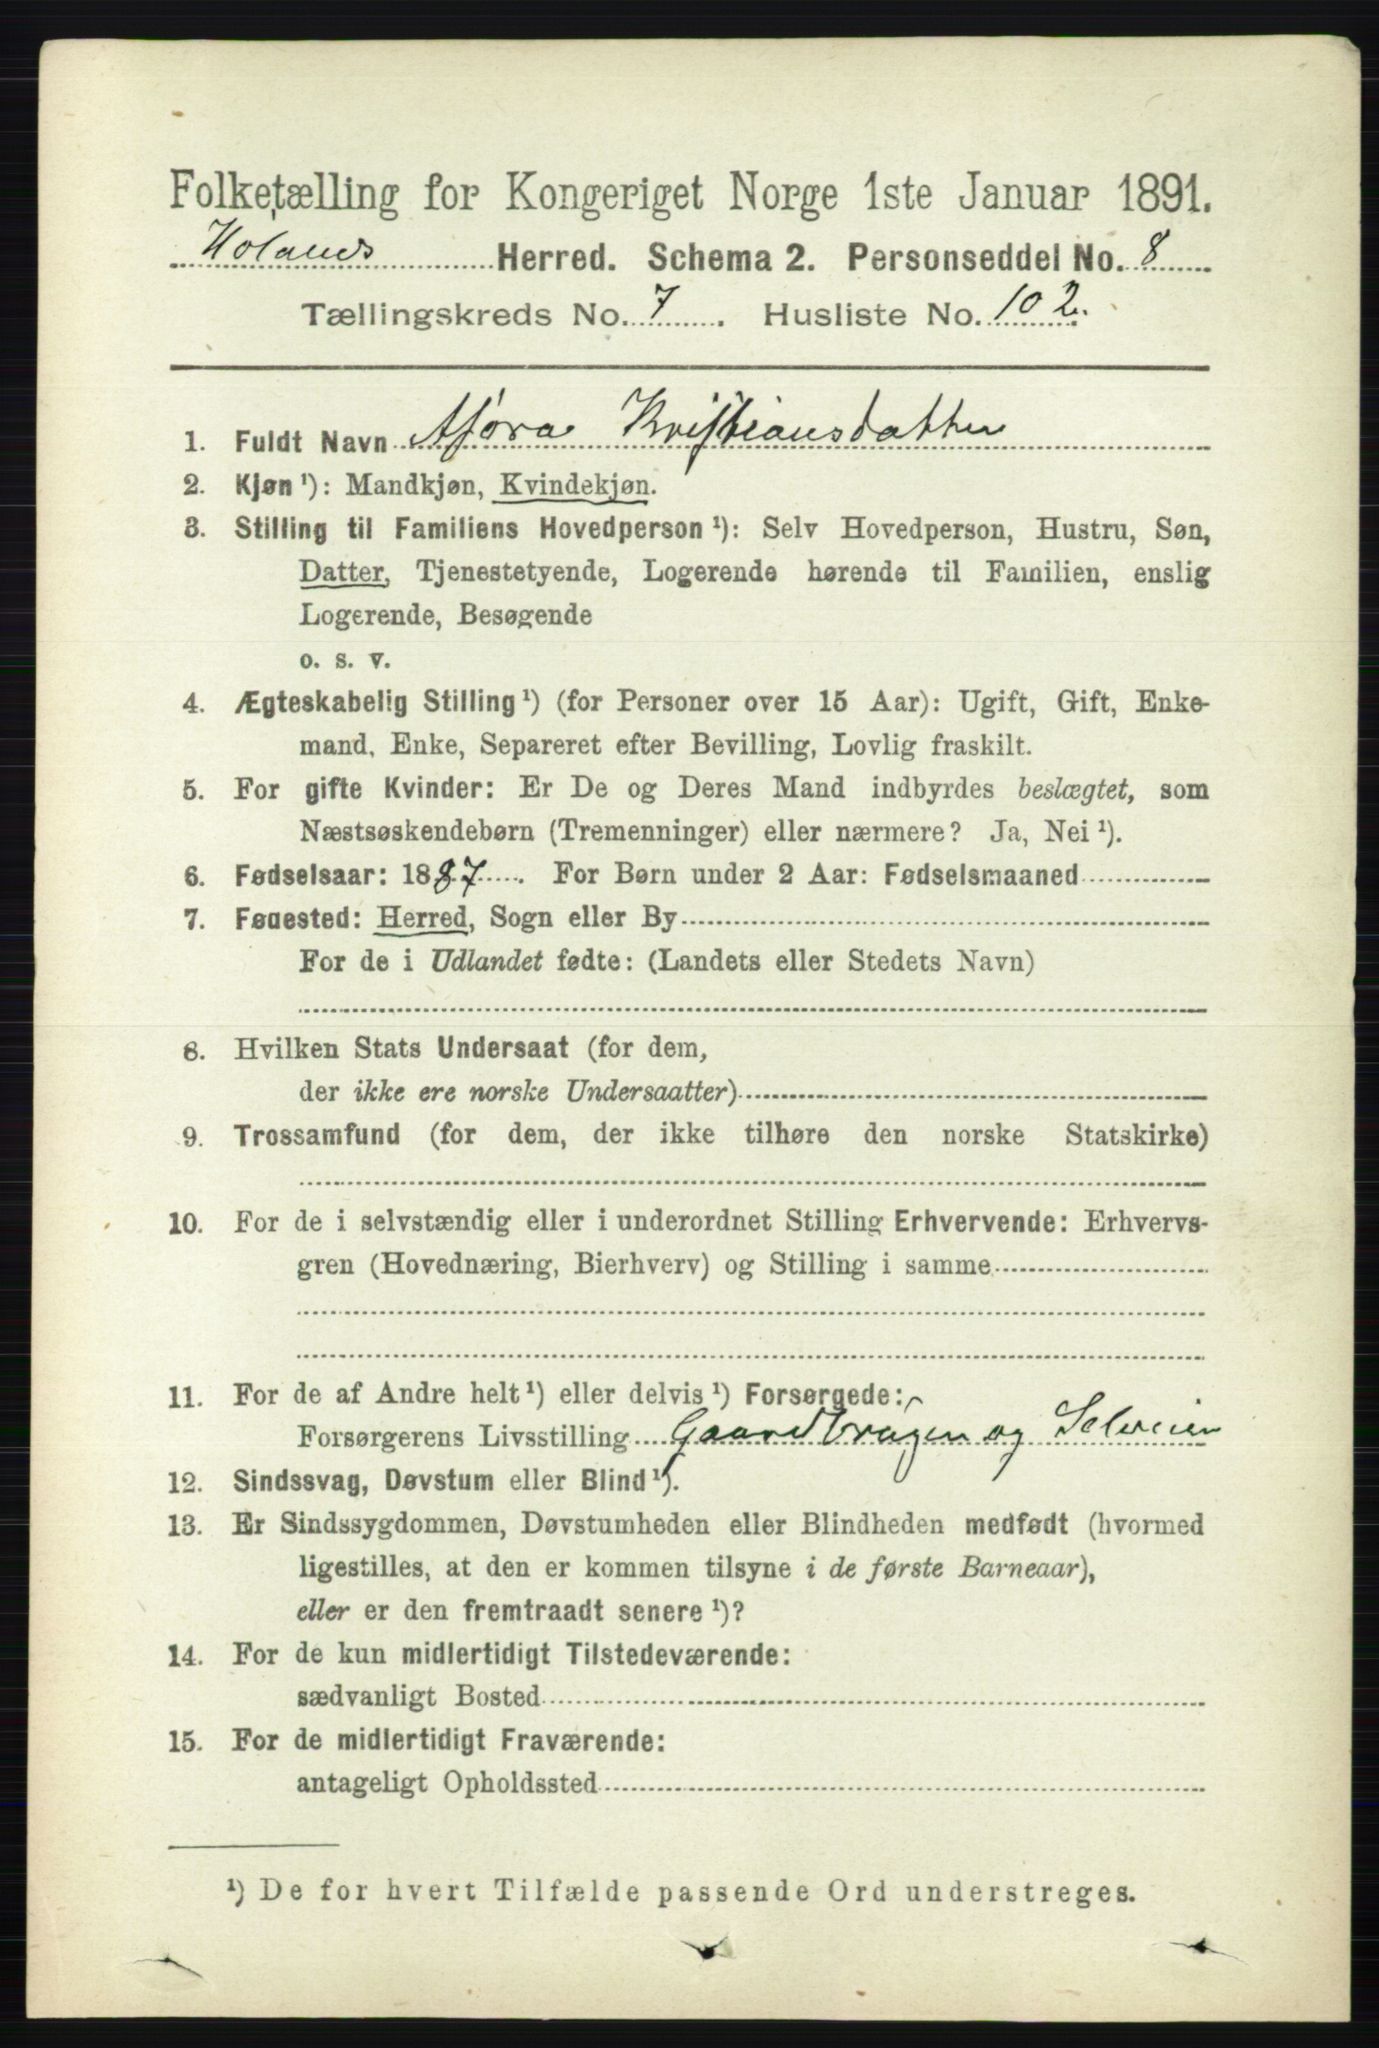 Folketælling for Kongeriget Norge 1ste Januar 1891.
Holands Herred. Schema 2. Personseddel No. 8
Tællingskreds No. 7. Husliste No. 102.
1. Fuldt Navn Afora Kristiansdatter
2. Kjøn ¹): Mandkjøn, Kvindekjøn.
3. Stilling til Familiens Hovedperson ¹): Selv Hovedperson, Hustru, Søn,
Datter, Tjenestetyende, Logerende hørende til Familien, enslig
Logerende, Besøgende
o. s. v.
4. Ægteskabelig Stilling ¹) (for Personer over 15 Aar): Ugift, Gift, Enke-
mand, Enke, Separeret efter Bevilling, Lovlig fraskilt.
5. For gifte Kvinder: Er De og Deres Mand indbyrdes beslægtet, som
Næstsøskendebørn (Tremenninger) eller nærmere? Ja, Nei ¹).
6. Fødselsaar: 1887. For Børn under 2 Aar: Fødselsmaaned
7. Fødested: Herred, Sogn eller By
For de i Udlandet fødte: (Landets eller Stedets Navn)
8. Hvilken Stats Undersaat (for dem,
der ikke ere norske Undersaatter)
9. Trossamfund (for dem, der ikke tilhøre den norske Statskirke)
10. For de i selvstændig eller i underordnet Stilling Erhvervende: Erhvervs-
gren (Hovednæring, Bierhverv) og Stilling i samme
11. For de af Andre helt ¹) eller delvis ¹) Forsørgede:
Forsørgerens Livsstilling Gaardbrugen og Selveier
12. Sindssvag, Døvstum eller Blind ¹).
13. Er Sindssygdommen, Døvstumheden eller Blindheden medfødt (hvormed
ligestilles, at den er kommen tilsyne i de første Barneaar),
eller er den fremtraadt senere ¹)?
14. For de kun midlertidigt Tilstedeværende:
sædvanligt Bosted
15. For de midlertidigt Fraværende:
antageligt Opholdssted
¹) De for hvert Tilfælde passende Ord understreges.